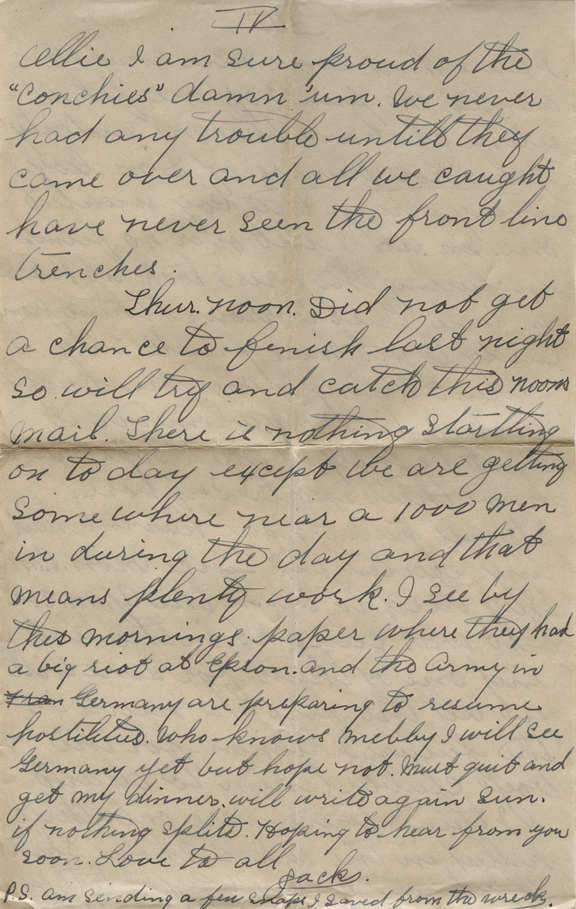 IV
Ellie I am sure proud of the
"conchies" damn 'um. We never
had any trouble untill they
came over and all we caught
have never seen the front line
trenches.
Thur. noon. Did not get
a chance to finish last night
so will try and catch this noons
mail. There is nothing startling
on to day except we are getting
some where near a 1000 men
in during the day and that
means plenty work. I see by
this mornings paper where they had
a big riot at Epson and the Army in
Fran Germany are preparing to resume
hostilities. Who knows mebby I will see
Germany yet but hope not. Must quit and
get my dinner. will write again Sun.
if nothing splits. Hoping to hear from you
soon. Love to all
Jack.
P.S. am sending a few snaps I saved from the wreck.